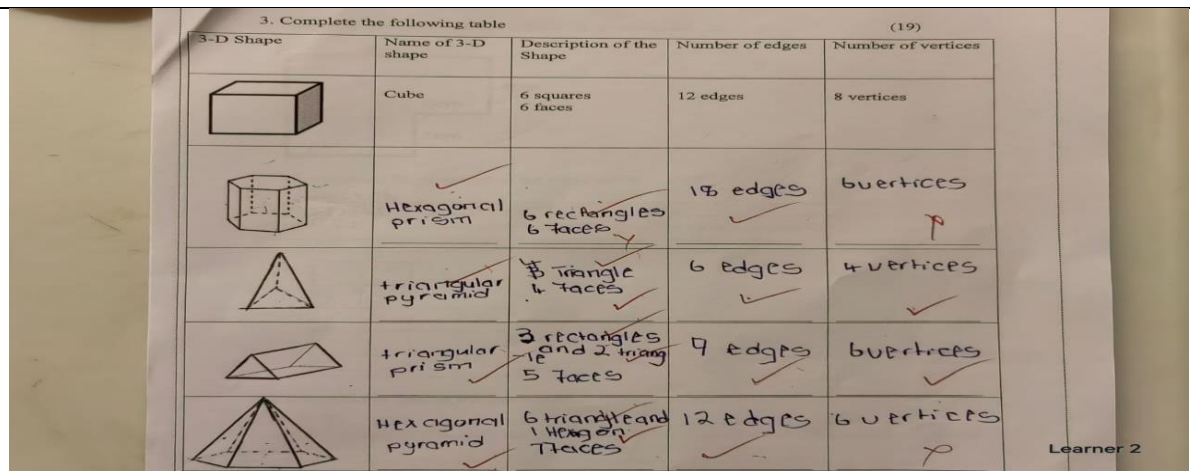 3. Complete the following table (19)
3-D Shape
Name of 3-D
shape
Description of the
Shape
Number of edges
Number of vertices
Cube
6 squares
6 faces
12 edges
8 vertices
Hexagonal
prism
6 rectangles
6 faces
18 edges
6 vertices
triangular
pyramid
Triangle
4 faces
6 edges
4 vertices
triangular
prism
3 rectangles
and 2 triang
le
5 faces
9 edges
6 vertices
Hexagonal
pyramid
6 triangle and
1 Hexagon
7 faces
12 edges
6 vertices
Learner 2